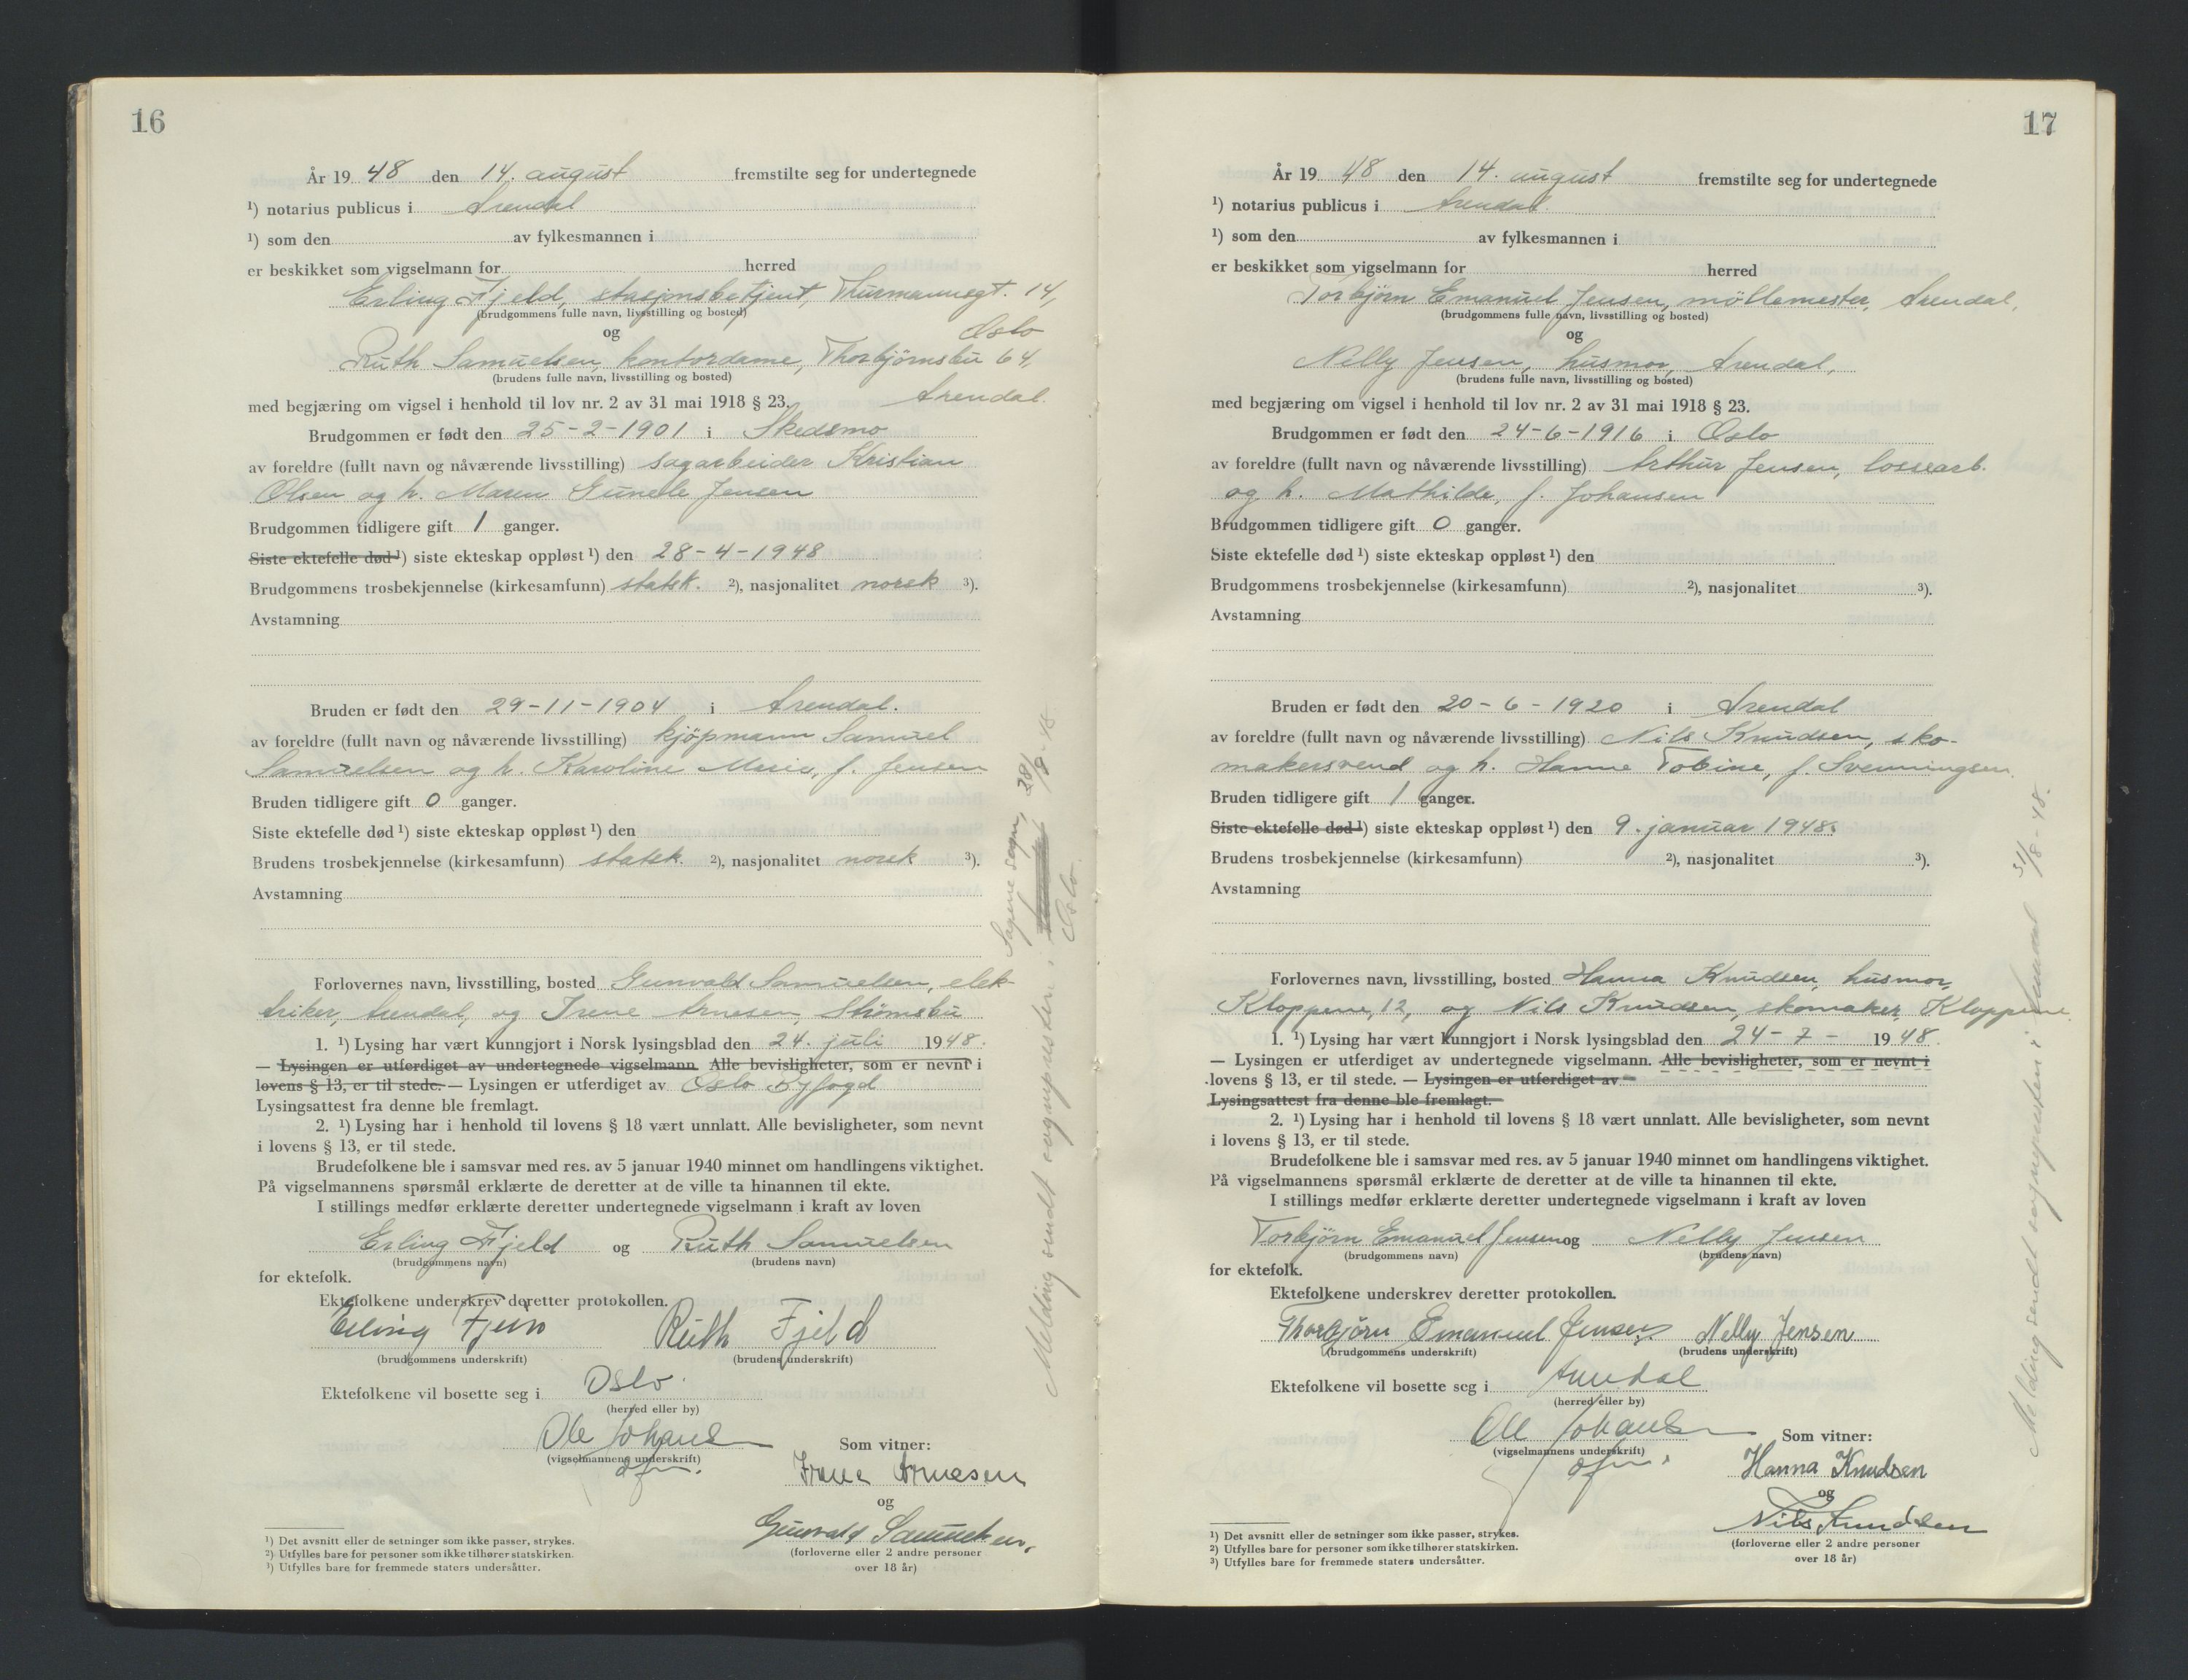 16
År 1948 den 14. august fremstilte seg for undertegnede
¹) notarius publicus i Arendal
¹) som den av fylkesmannen i
er beskikket som vigselmann for herred
Erling Fjeld, stasjonsbetjent, Thurmannsgt. 14,
(brudgommens fulle navn, livsstilling og bosted)
Oslo
og
Ruth Samuelsen, kontordame, Thorbjörnsbu 64,
(brudens fulle navn, livsstilling og bosted)
Arendal.
med begjæring om vigsel i henhold til lov nr. 2 av 31 mai 1918 § 23.
Brudgommen er født den 25-2-1901 i Skedsmo
av foreldre (fullt navn og nåværende livsstilling) sagarbeider Kristian
Olsen og h. Maren Gunelle Jensen
Brudgommen tidligere gift 1 ganger.
Siste ektefelle død ¹) siste ekteskap oppløst ¹) den 28-4-1948
Brudgommens trosbekjennelse (kirkesamfunn) statsk. ²), nasjonalitet norsk ³).
Avstamning
Bruden er født den 29-11-1904 i Arendal.
av foreldre (fullt navn og nåværende livsstilling) kjöpmann Samuel
Samuelsen og h. Karoline Marie, f. Jensen
Bruden tidligere gift 0 ganger.
Siste ektefelle død ¹) siste ekteskap oppløst ¹) den
Brudens trosbekjennelse (kirkesamfunn) statsk. ²), nasjonalitet norsk ³).
Avstamning
Forlovernes navn, livsstilling, bosted Gunvald Samuelsen, elek-
triker, Arendal, og Irene Arnesen, Strömsbu
1. ¹) Lysing har vært kunngjort i Norsk lysingsblad den 24. juli 1948.
— Lysingen er utferdiget av undertegnede vigselmann. Alle bevisligheter, som er nevnt i
lovens § 13, er til stede. — Lysingen er utferdiget av Oslo Byfogd
Lysingsattest fra denne ble fremlagt.
2. ¹) Lysing har i henhold til lovens § 18 vært unnlatt. Alle bevisligheter, som nevnt
i lovens § 13, er til stede.
Brudefolkene ble i samsvar med res. av 5 januar 1940 minnet om handlingens viktighet.
På vigselmannens spørsmål erklærte de deretter at de ville ta hinannen til ekte.
I stillings medfør erklærte deretter undertegnede vigselmann i kraft av loven
Erling Fjeld og Ruth Samuelsen
(brudgommens navn) (brudens navn)
for ektefolk.
Ektefolkene underskrev deretter protokollen.
Erling Fjeld Ruth Fjeld
(brudgommens underskrift) (brudens underskrift)
Ektefolkene vil bosette seg i Oslo.
(herred eller by)
Ole Johansen
(vigselmannens underskrift)
Som vitner:
Irene Arnesen
og
Gunvald Samuelsen,
(forloverne eller 2 andre personer
over 18 år)
¹) Det avsnitt eller de setninger som ikke passer, strykes.
²) Utfylles bare for personer som ikke tilhører statskirken.
³) Utfylles bare for fremmede staters undersåtter.
Melding sendt sognepresten i
Sagene sogn, 28/8-48
Oslo
17
År 1948 den 14. august fremstilte seg for undertegnede
¹) notarius publicus i Arendal.
¹) som den av fylkesmannen i
er beskikket som vigselmann for herred
Torbjörn Emanuel Jensen, möllemester, Arendal,
(brudgommens fulle navn, livsstilling og bosted)
og
Nelly Jensen, husmor, Arendal,
(brudens fulle navn, livsstilling og bosted)
med begjæring om vigsel i henhold til lov nr. 2 av 31 mai 1918 § 23.
Brudgommen er født den 24-6-1916 i Oslo
av foreldre (fullt navn og nåværende livsstilling) Arthur Jensen, lossearb.
og h. Mathilde, f. Johansen
Brudgommen tidligere gift 0 ganger.
Siste ektefelle død ¹) siste ekteskap oppløst ¹) den
Brudgommens trosbekjennelse (kirkesamfunn) ²), nasjonalitet ³).
Avstamning
Bruden er født den 20-6-1920 i Arendal
av foreldre (fullt navn og nåværende livsstilling) Nils Knudsen, sko-
makersvend og h. Hanne Tobine, f. Svenningsen.
Bruden tidligere gift 1 ganger.
Siste ektefelle død ¹) siste ekteskap oppløst ¹) den 9. januar 1948.
Brudens trosbekjennelse (kirkesamfunn) ²), nasjonalitet ³).
Avstamning
Forlovernes navn, livsstilling, bosted Hanna Knudsen, husmor,
Kloppene, 12, og Nils Knudsen, skomaker, Kloppene
1. ¹) Lysing har vært kunngjort i Norsk lysingsblad den 24-7- 1948.
— Lysingen er utferdiget av undertegnede vigselmann. Alle bevisligheter, som er nevnt i
lovens § 13, er til stede. — Lysingen er utferdiget av
Lysingsattest fra denne ble fremlagt.
2. ¹) Lysing har i henhold til lovens § 18 vært unnlatt. Alle bevisligheter, som nevnt
i lovens § 13, er til stede.
Brudefolkene ble i samsvar med res. av 5 januar 1940 minnet om handlingens viktighet.
På vigselmannens spørsmål erklærte de deretter at de ville ta hinannen til ekte.
I stillings medfør erklærte deretter undertegnede vigselmann i kraft av loven
Torbjörn Emanuel Jensen og Nelly Jensen
(brudgommens navn) (brudens navn)
for ektefolk.
Ektefolkene underskrev deretter protokollen.
Thorbjörn Emanuel Jensen Nelly Jensen
(brudgommens underskrift) (brudens underskrift)
Ektefolkene vil bosette seg i Arendal
(herred eller by)
Ole Johansen
(vigselmannens underskrift)
Som vitner:
Hanna Knudsen
og
Nils Knudsen
(forloverne eller 2 andre personer
over 18 år)
¹) Det avsnitt eller de setninger som ikke passer, strykes.
²) Utfylles bare for personer som ikke tilhører statskirken.
³) Utfylles bare for fremmede staters undersåtter.
Melding sendt sognepresten i Arendal 31/8-48.